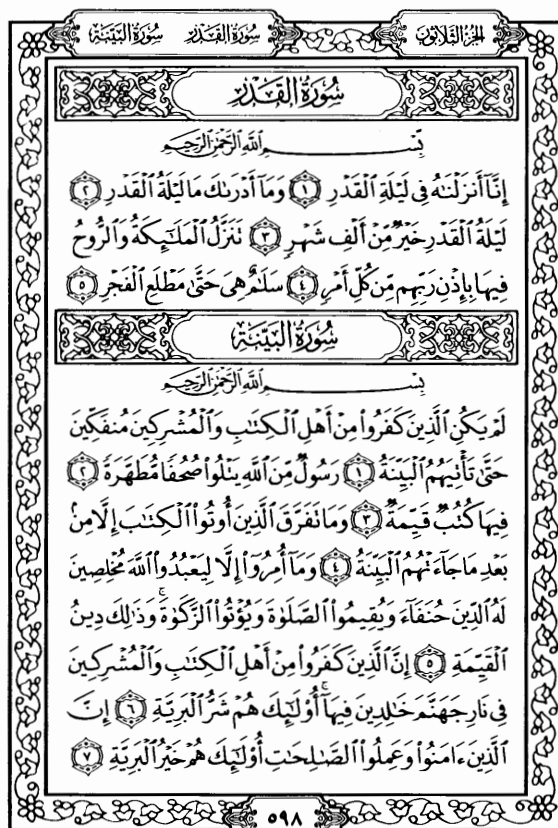 سُورَةُ القَدْرِ سُورَةُ البَيِّنَةِ الجُزْءُ الثَّلَاثُونَ
سُورَةُ القَدْرِ
بِسْمِ اللَّهِ الرَّحْمَٰنِ الرَّحِيمِ
إِنَّآ أَنزَلْنَٰهُ فِى لَيْلَةِ ٱلْقَدْرِ ١ وَمَآ أَدْرَىٰكَ مَا لَيْلَةُ ٱلْقَدْرِ ٢
لَيْلَةُ ٱلْقَدْرِ خَيْرٌ مِّنْ أَلْفِ شَهْرٍ ٣ تَنَزَّلُ ٱلْمَلَٰٓئِكَةُ وَٱلرُّوحُ
فِيهَا بِإِذْنِ رَبِّهِم مِّن كُلِّ أَمْرٍ ٤ سَلَٰمٌ هِىَ حَتَّىٰ مَطْلَعِ ٱلْفَجْرِ ٥
سُورَةُ البَيِّنَةِ
بِسْمِ اللَّهِ الرَّحْمَٰنِ الرَّحِيمِ
لَمْ يَكُنِ ٱلَّذِينَ كَفَرُوا۟ مِنْ أَهْلِ ٱلْكِتَٰبِ وَٱلْمُشْرِكِينَ مُنفَكِّينَ
حَتَّىٰ تَأْتِيَهُمُ ٱلْبَيِّنَةُ ١ رَسُولٌ مِّنَ ٱللَّهِ يَتْلُوا۟ صُحُفًا مُّطَهَّرَةً ٢
فِيهَا كُتُبٌ قَيِّمَةٌ ٣ وَمَا تَفَرَّقَ ٱلَّذِينَ أُوتُوا۟ ٱلْكِتَٰبَ إِلَّا مِنۢ
بَعْدِ مَا جَآءَتْهُمُ ٱلْبَيِّنَةُ ٤ وَمَآ أُمِرُوٓا۟ إِلَّا لِيَعْبُدُوا۟ ٱللَّهَ مُخْلِصِينَ
لَهُ ٱلدِّينَ حُنَفَآءَ وَيُقِيمُوا۟ ٱلصَّلَوٰةَ وَيُؤْتُوا۟ ٱلزَّكَوٰةَ ۚ وَذَٰلِكَ دِينُ
ٱلْقَيِّمَةِ ٥ إِنَّ ٱلَّذِينَ كَفَرُوا۟ مِنْ أَهْلِ ٱلْكِتَٰبِ وَٱلْمُشْرِكِينَ
فِى نَارِ جَهَنَّمَ خَٰلِدِينَ فِيهَآ ۚ أُو۟لَٰٓئِكَ هُمْ شَرُّ ٱلْبَرِيَّةِ ٦ إِنَّ
ٱلَّذِينَ ءَامَنُوا۟ وَعَمِلُوا۟ ٱلصَّٰلِحَٰتِ أُو۟لَٰٓئِكَ هُمْ خَيْرُ ٱلْبَرِيَّةِ ٧
٥٩٨